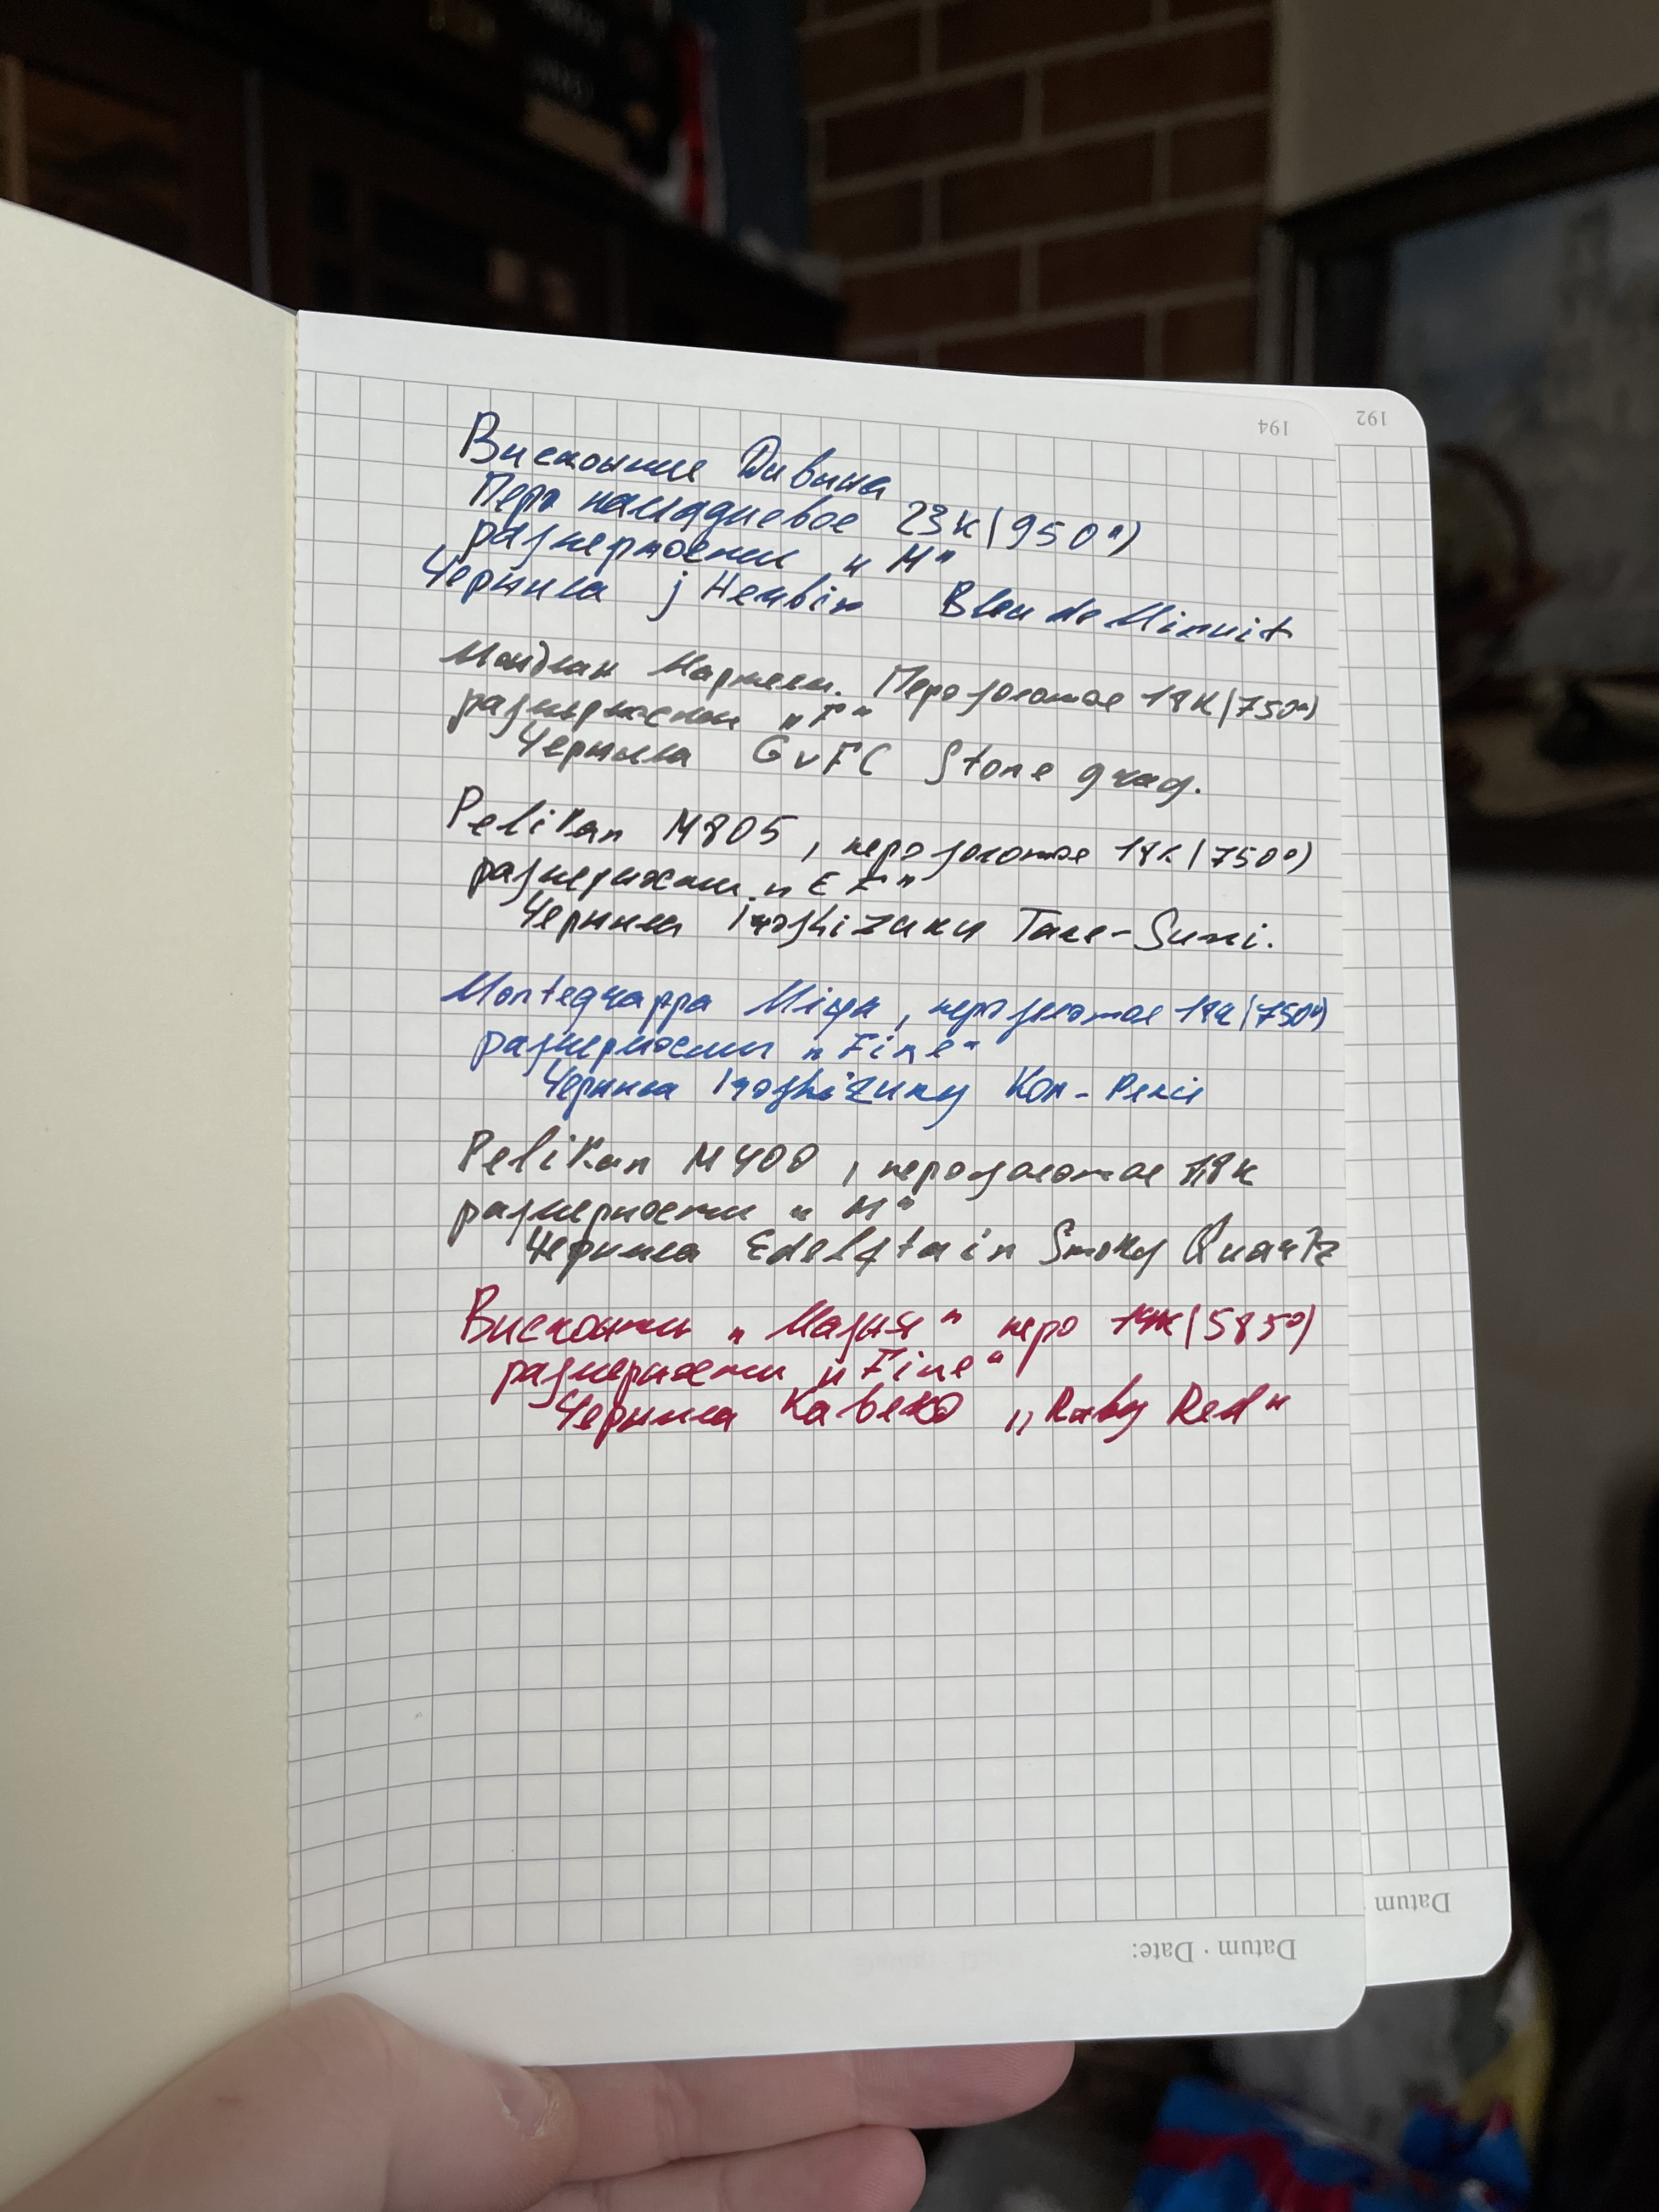 Висконти Дивина
Перо палладиевое 23к(950°)
размерности „М"
Чернила j Herbin Bleu de Minuit
Перо золотое 18К(750°)
размерности „F"
Чернила GvFC Stone gray.
Pelikan M805, перо золотое 18к(750°)
размерности „EF"
Чернила Iroshizuku Take-Sumi.
Montegrappa Miya, перо золотое 18к(750°)
размерности „Fine"
Чернила Iroshizuku Kon-Peki
Pelikan M400, перо золотое 18к
размерности „М"
Чернила Edelstain Smoky Quartz
Висконти „Магия" перо 14к(585°)
размерности „Fine"
Чернила Кавеко „Ruby Red"
194
192
Datum · Date:
Datum